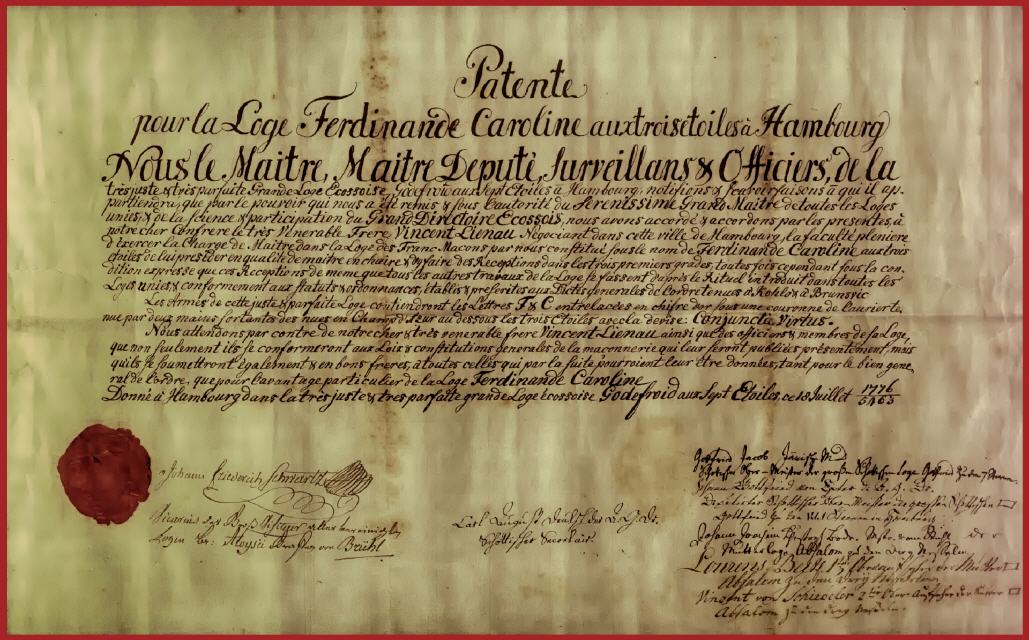 Patente
pour la Loge Ferdinande Caroline aux trois étoiles à Hambourg
Nous le Maitre, Maitre Deputé, Surveillans & Officiers, de la
très juste & très parfaite Grande Loge Ecossoise, Godefroi aux Sept Etoiles à Hambourg, notifions & sçavoir faisons à qui il ap-
partiendra, que par le pouvoir qui nous a été remis & sous l'autorité du Serenissime Grand Maitre de toutes les Loges
unies, & de la science & participation du Grand Directoire Ecossois, nous avons accordé & accordons par les presentes, à
notre cher Confrere le très Vénerable Frere Vincent Lienau Négociant dans cette ville de Hambourg, la faculté pleniere
d'exercer la Charge de Maitre dans la Loge des Franc-Maçons par nous constitué sous le nom de Ferdinande Caroline aux trois
étoiles de lui presider en qualité de maitre en chaire & d'y faire des Receptions dans les trois premiers grades, toutes fois cependant sous la con-
dition expresse que ces Receptions de meme que tous les autres travaux de la Loge, se fassent d'après le Rituel introduit dans toutes les
Loges unies & conformement aux statuts & ordonnances, établis & prescrites aux Diètes generales de l'ordre tenues à Kohlo & à Brunsvic
Les Armes de cette juste & parfaite Loge contiendront les Lettres F & C entrelacées en chifre d'or sous une couronne de laurier te-
nue par deux mains sortantes des nues en Champ d'azur au dessous les trois Etoiles avec la devise: Conjuncta Virtus.
Nous attendons par contre de notre cher & très vénerable frere Vincent Lienau ainsi que des officiers & membres de sa Loge,
que non seulement ils se conformeront aux Loix & constitutions generales de la maçonnerie qui leur seront publiées présentement, mais
qu'ils se soumettront également & en bons freres, à toutes celles qui par la suite pourroient leur être données, tant pour le bien gene-
ral de l'ordre, que pour l'avantage particulier de la Loge Ferdinande Caroline
Donné à Hambourg dans la très juste & très parfaite grande Loge écossoise Godefroid aux Sept Etoiles, ce 18 Juillet 1776
5463
Johann Friederich Schwartz
Logen Br: Aloysii von Brühl
Carl August
Schottischer Secretair.
Gottfried Jacob Jänisch M.D.
Schotischer Ober-Meister der großen Schotischen Loge Gottfried zu den 7 Sternen
Johann Gottfried von
Deputirter Schottischer Ober-Meister
Gottfried zu den
Johann Joachim Christoph Bode.
Absalom
Lorenz
Absalom zu den
Vincent von Schiedeler 2ter
Absalom zu den